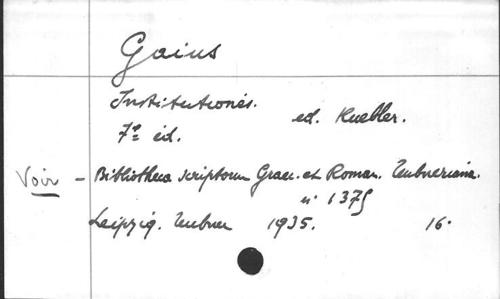 Gaius
Institutiones. ed. Kuebler.
7e éd.
Voir - Bibliotheca scriptorum Graec. et Roman. Teubneriana.
n° 1375
Leipzig. Teubner 1935. 16°